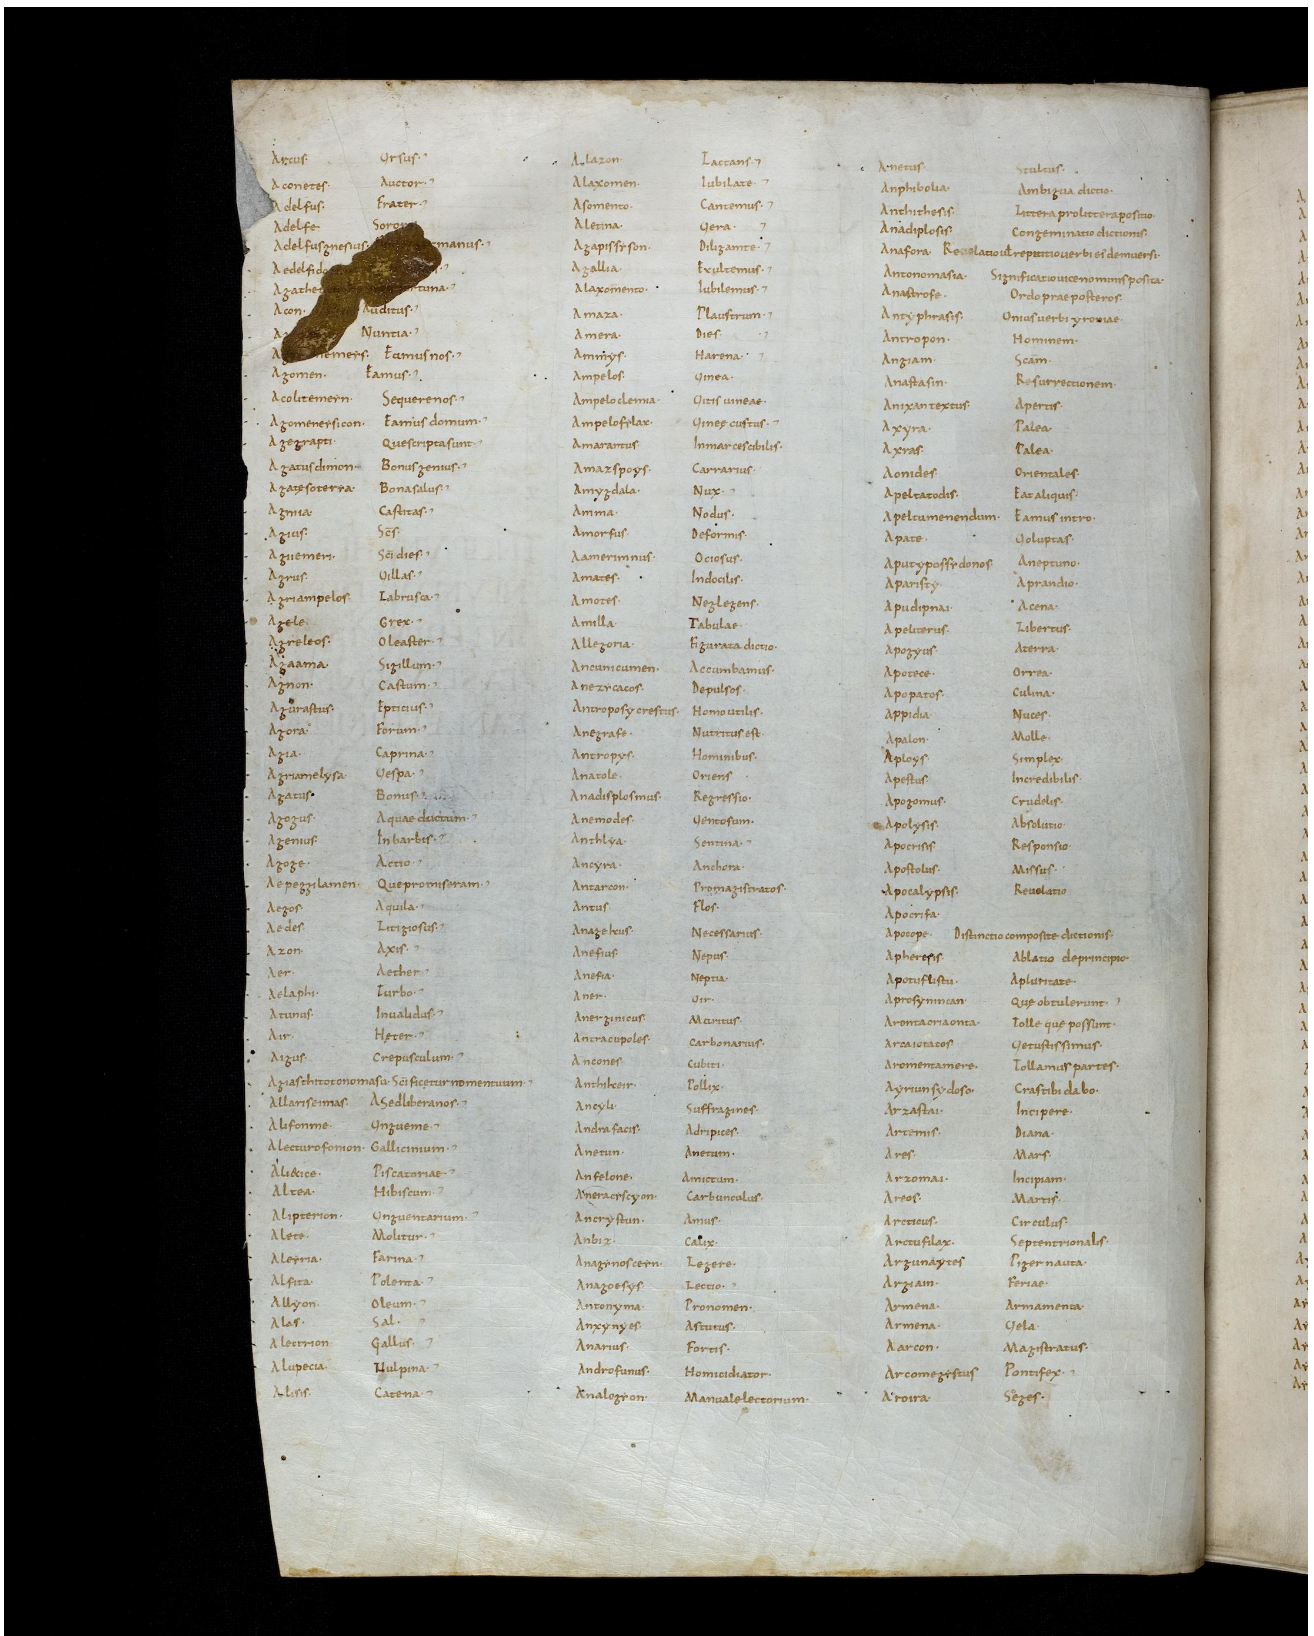 Arcus· Ursus·
Aconetes· Auctor·
Adelfus· Frater·
Adelfe· Soror
Adelfusgnesius· manus·
Aedelfido
Agathe tuna·
Acon· Auditus·
Nuntia·
Eamusnos·
Agomen· Eamus·
Acolitemern· Sequerenos·
Agomenersicon· Eamus domum·
Agegrapti· Quescriptasunt
Agatusdimon· Bonusgenius·
Agatesoterra· Bonasalus·
Agnia· Castitas·
Agius· Scs·
Agiemeri· Sci dies·
Agrus· Uillas·
Agriampelos· Labrusca·
Agele· Grex·
Agreleos· Oleaster·
Agaama· Sigillum·
Agnon· Castum·
Agurastus· Epticius·
Agora· Forum·
Agia· Caprina·
Agriamelysa· Uespa·
Agatus· Bonus·
Agogus· Aquae ductum·
Agenius· Inbarbis·
Agoge· Actio·
Aepeggilamen· Quepromiseram·
Aegos· Aquila·
Aedes· Litigiosus·
Azon· Axis·
Aer· Aether·
Aelaphi· Turbo·
Atunus· Inualidus·
Air· Heter·
Aigus· Crepusculum·
Agiasthitotonomasu· Scificetur nomentuum·
Allariseimas· ASedliberanos·
Alifonme· Ungueme·
Alecturofonion· Gallicinium·
Ali&ice· Piscatoriae·
Altea· Hibiscum·
Alipterion· Unguentarium·
Alete· Molitur·
Aleyria· Farina·
Alfita· Polenta·
Allyon· Oleum·
Alas· Sal·
Alectrion· Gallus·
Alupecia· Uulpina·
Alisis· Catena·
Alazon· Lactans·
Alaxomen· Iubilate·
Asomento· Cantemus·
Aletina· Uera·
Agapissyson· Diligamte·
Agallia· Exultemus·
Alaxomento· Iubilemus·
Amaza· Plaustrum·
Amera· Dies·
Ammys· Harena·
Ampelos· Uinea·
Ampeloclemia· Uitis uineae·
Ampelofilax· Uinee custus·
Amarantus· Inmarcescibilis·
Amazspoys· Carrarius·
Amygdala· Nux·
Amma· Nodus·
Amorfus· Deformis·
Aamerimnus· Ociosus·
Amates· Indocilis·
Amotes· Neglegens·
Amilla· Tabulae·
Allegoria· Figurata dictio·
Ancunicumen· Accumbamus·
Anezycacos· Depulsos·
Antroposycrestus· Homoutilis·
Anegrafe· Nutritusest·
Antropys· Hominibus·
Anatole· Oriens
Anadisplosmus· Regressio·
Anemodes· Uentosum·
Anthlya· Sentina·
Ancyra· Anchora·
Antarcon· Promagistratos·
Antus· Flos·
Anagehus· Necessarius·
Anefius· Nepus·
Anefia· Neptia·
Aner· Uir·
Anerginicus· Maritus·
Antracopoles· Carbonarius·
Ancones· Cubiti·
Anthiheir· Pollix·
Ancyli· Suffragines·
Andrafacis· Adripices·
Anetun· Anetum·
Anfelone· Amictum·
Aneracescyon· Carbunculus·
Ancrystun· Amus·
Anbix· Calix·
Anagynoscern· Legere·
Anagoesys· Lectio·
Antonyma· Pronomen·
Anxynyes· Astutus·
Anarius· Fortis·
Androfunus· Homicidiator·
Analogyon· Manualelectorium·
Anetus· Stultus·
Anphibolia· Ambigua dictio·
Anthithesis· Littera prolitteraposito·
Anadiplosis· Congeminatio dictionis·
Anafora· Reuelatio ul repetitiouerbiesdemuersi·
Antonomasia· Significatiouicenominisposita·
Anastrofe· Ordo prae posteros·
Antyphrasis· Uniusuerbi yroniae·
Antropon· Hominem·
Angiam· Scam·
Anastasin· Resurrectionem·
Anixantextus· Apertis·
Axyra· Palea·
Axras· Palea·
Aonides· Orientales·
Apeltatodis· Eat aliquis·
Apeltumenendum· Eamus intro·
Apate· Uoluptas·
Aputypossydonos· Aneptuno·
Aparisty· Aprandio·
Apudipnai· Acena·
Apeliterus· Libertus·
Apogyus· Aterra·
Apotece· Orrea·
Apopatos· Culina·
Appidia· Nuces·
Apalon· Molle·
Aploys· Simplex·
Apestus· Incredibilis·
Apogomus· Crudelis·
Apolysis· Absolutio·
Apocrisis· Responsio·
Apostolus· Missus·
Apocalypsis· Reuelatio
Apocrifa·
Apocope· Distinctio composite dictionis·
Apheresis· Ablatio deprincipio·
Apotuflistu· Apluritate·
Aprosynincan· Que obtulerunt·
Arontacriaonta· Tolle que possunt·
Arcaiotatos· Uetustissimus·
Aromentamere· Tollamus partes·
Ayriunsydoso· Crastibi dabo·
Arzastai· Incipere·
Artemis· Diana·
Ares· Mars·
Arzomai· Incipiam·
Areos· Martis·
Arcticus· Circulus·
Arctufilax· Septentrionalis·
Argunaytes· Piger nauta·
Argiam· Feriae·
Armena· Armamenta·
Armena· Uela·
Aarcon· Magistratus·
Arcomegystus· Pontifex·
Aroira· Seges·